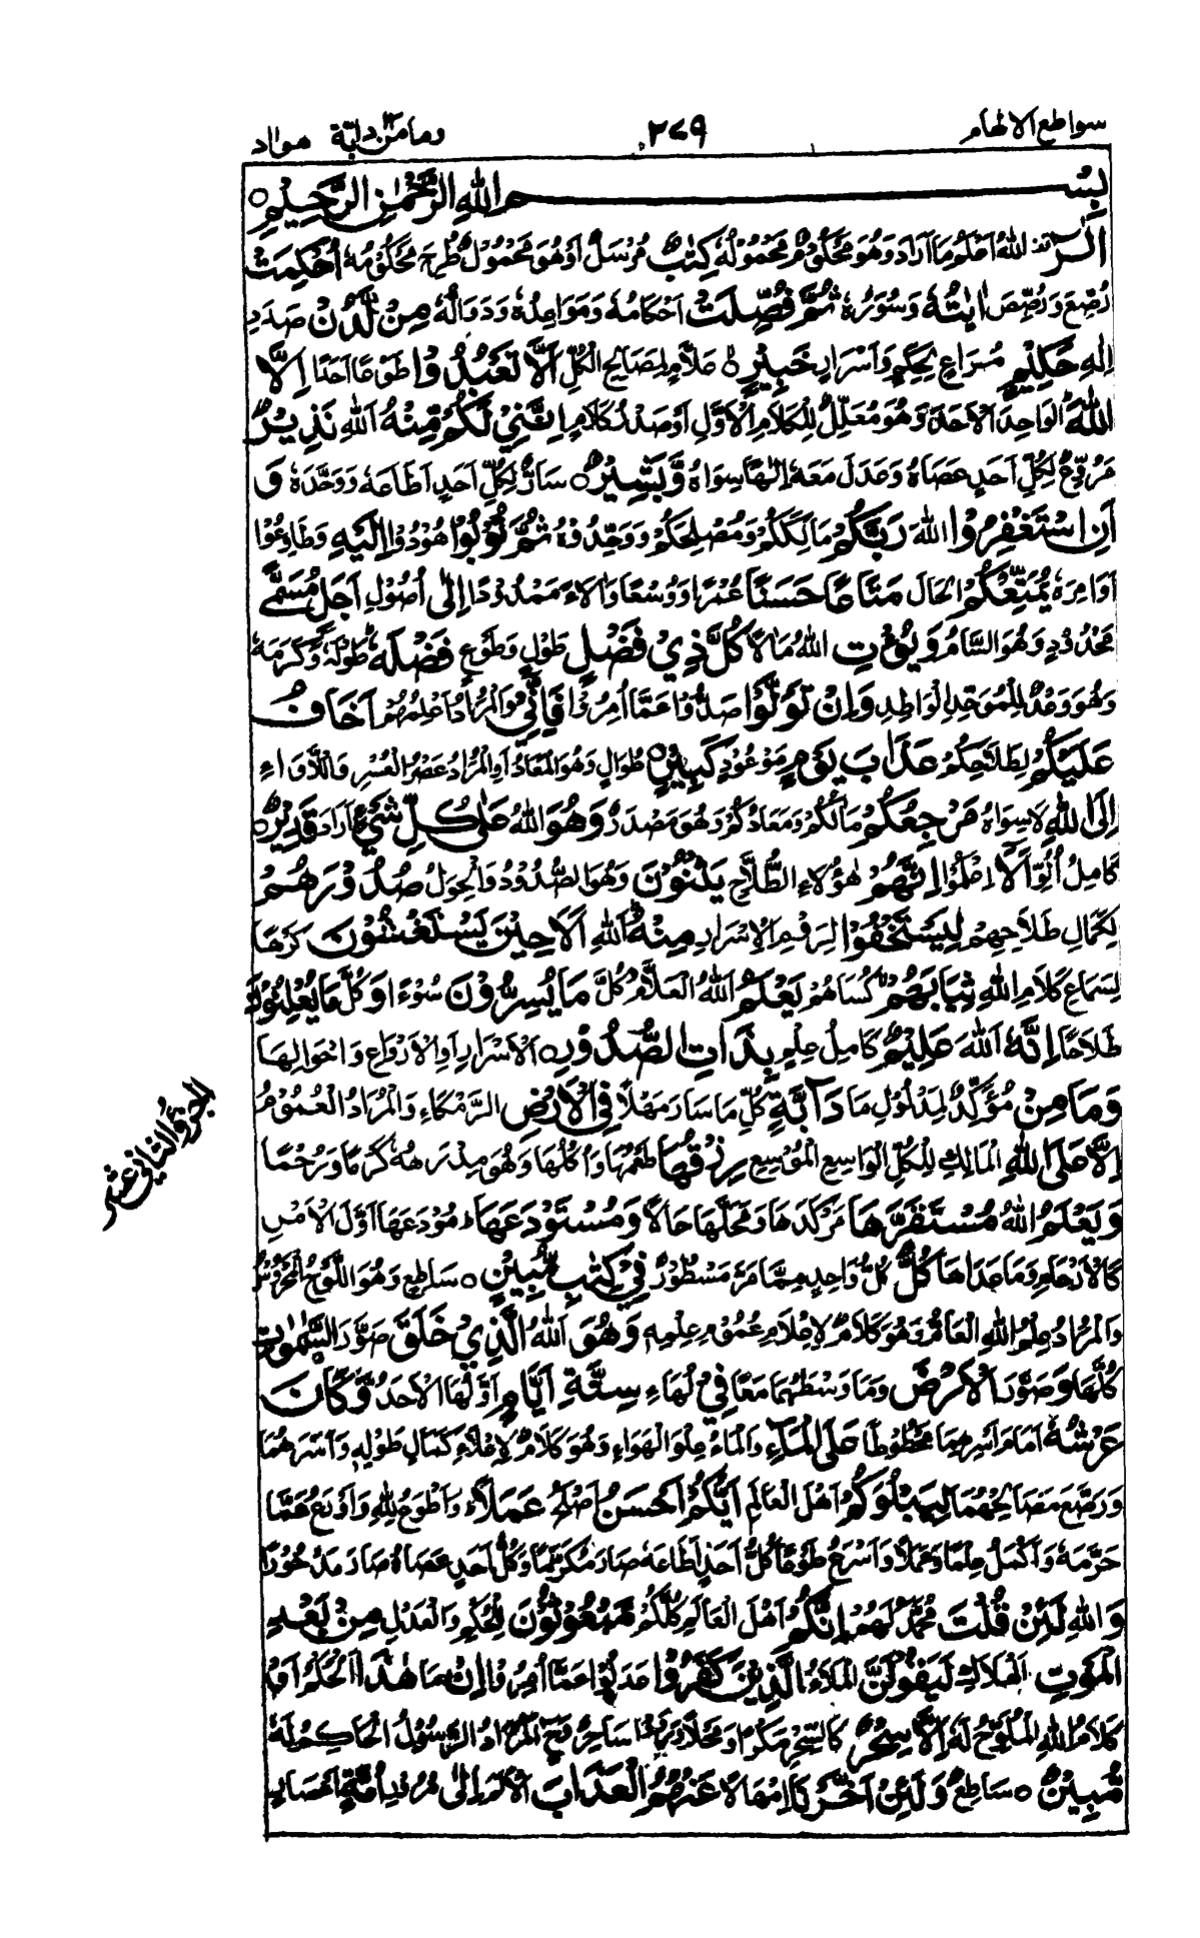 سواطع الالهام ٢٧٩ ومامن دابة ١٢ هود ١١
بِسْمِ اللهِ الرَّحْمٰنِ الرَّحِيْمِ
الٓرٰ اللهُ اَعْلَمُ مَا اَرَادَ وَهُوَ مَحْكُوْمٌ مَحْمُوْلُهٗ كِتٰبٌ مُرْسَلٌ اَوْ هُوَ مَحْمُوْلٌ طُرِحَ مَحْكُوْمُهٗ اُحْكِمَتْ
رُصِّعَ وَرُصِّصَ اٰيٰتُهٗ وَسُوَرُهٗ ثُمَّ فُصِّلَتْ اَحْكَامُهٗ وَمَوَاعِدُهٗ وَدَوَالُّهٗ مِنْ لَّدُنْ صَدَدِ
اِلٰهٍ حَكِيْمٍ مُرَاعٍ لِحِكَمٍ وَاَسْرَارٍ خَبِيْرٍ عَلَّامٍ لِمَصَالِحِ الْكُلِّ اَلَّا تَعْبُدُوْا طَوْعًا اَحَدًا اِلَّا
اللهَ الْوَاحِدَ الْاَحَدَ وَهُوَ مُعَلِّلٌ لِلْكَلَامِ الْاَوَّلِ اَوْ صَدْرُ كَلَامٍ اِنَّنِيْ لَكُمْ مِّنْهُ اللهِ نَذِيْرٌ
مُرَوِّعٌ لِكُلِّ اَحَدٍ عَصَاهُ وَعَدَلَ مَعَهٗ اِلٰهًا سِوَاهُ وَّبَشِيْرٌ سَارٌّ لِكُلِّ اَحَدٍ اَطَاعَهٗ وَوَحَّدَهٗ وَ
اَنِ اسْتَغْفِرُوْا اللهَ رَبَّكُمْ مَالِكَكُمْ وَمُصْلِحَكُمْ وَوَحِّدُوْهُ ثُمَّ تُوْبُوْا هُوْدُوْا اِلَيْهِ وَطَاوِعُوْا
اَوَامِرَهٗ يُمَتِّعْكُمْ الْحَالَ مَتَاعًا حَسَنًا عُمْرًا وَوُسْعًا وَاٰلَاءً مَمْدُوْدًا اِلٰى اُصُوْلِ اَجَلٍ مُسَمًّى
مَحْدُوْدٍ وَهُوَ السَّامُ وَيُؤْتِ اللهُ مَاٰلًا كُلَّ ذِيْ فَضْلٍ طَوْلٍ وَطَوْعٍ فَضْلَهٗ طَوْلَهٗ وَكَرَمَهٗ
وَهُوَ وَعْدٌ لِلْمُوَحِّدِ الْوَاطِدِ وَاِنْ تَوَلَّوْا صَدُّوْا عَمَّا اُمِرُوْا فَاِنِّيْ هُوَ الْمُرَادُ اَعْلِمْهُمْ اَخَافُ
عَلَيْكُمْ لِطَلَاحِكُمْ عَذَابَ يَوْمٍ مَوْعُوْدٍ كَبِيْرٍ طُوَالٍ وَهُوَ الْمَعَادُ اَوِ الْمُرَادُ عَصْرُ الْعُسْرِ وَاللَّاْوَاءِ
اِلَى اللهِ لَا سِوَاهُ مَرْجِعُكُمْ مَاٰلُكُمْ وَمَعَادُكُمْ وَهُوَ مَصْدَرٌ وَهُوَ اللهُ عَلٰى كُلِّ شَيْءٍ اَرَادَ قَدِيْرٌ
كَامِلُ اُلُوٍّ اَلَا اعْلَمُوْا اِنَّهُمْ هٰؤُلَاءِ الطُّلَّاحِ يَثْنُوْنَ وَهُوَ الصُّدُوْدُ وَالْحِوَلُ صُدُوْرَهُمْ
لِكَمَالِ طَلَاحِهِمْ لِيَسْتَخْفُوْا لِرَوْمِ الْاِسْرَارِ مِنْهُ اللهِ اَلَا حِيْنَ يَسْتَغْشُوْنَ كَرْهًا
لِسَمَاعِ كَلَامِ اللهِ ثِيَابَهُمْ كُسَاهُمْ يَعْلَمُ اللهُ الْعَلَّامُ كُلَّ مَا يُسِرُّوْنَ سُوْءًا وَكُلَّ مَا يُعْلِنُوْنَ
طَلَاحًا اِنَّهٗ اللهَ عَلِيْمٌ كَامِلُ عِلْمٍ بِذَاتِ الصُّدُوْرِ الْاَسْرَارِ اَوِ الْاَرْوَاعِ وَاَحْوَالِهَا
وَمَا مِنْ مُؤَكِّدٌ لِمَدْلُوْلِ مَا دَآبَّةٍ كُلِّ مَا سَارَ مَهْلًا فِي الْاَرْضِ الرَّمْكَاءِ وَالْمُرَادُ الْعُمُوْمُ
اِلَّا عَلَى اللهِ الْمَالِكِ لِلْكُلِّ الْوَاسِعِ الْمُوْسِعِ رِزْقُهَا طُعْمُهَا وَاُكُلُهَا وَهُوَ مِدْرَهُهٗ كَرَمًا وَرُحْمًا
وَيَعْلَمُ اللهُ مُسْتَقَرَّهَا مَرْكَدَهَا وَمَحَلَّهَا حَالًا وَمُسْتَوْدَعَهَا مَوْدَعَهَا اَوَّلَ الْاَمْرِ
كَالْاَرْحَامِ وَمَا عَدَاهَا كُلٌّ كُلُّ وَاحِدٍ مِمَّا مَرَّ مَسْطُوْرٌ فِيْ كِتٰبٍ مُّبِيْنٍ سَاطِعٍ وَهُوَ اللَّوْحُ الْمَحْرُوْسُ
وَالْمُرَادُ عِلْمُ اللهِ الْعَامُّ وَهُوَ كَلَامٌ لِاِعْلَامِ عُمُوْمِ عِلْمِهٖ وَهُوَ اللهُ الَّذِيْ خَلَقَ صَوَّرَ السَّمٰوٰتِ
كُلَّهَا وَصَوَّرَ الْاَرْضَ وَمَا وَسَطَهُمَا مَعًا فِيْ لُهَاءِ سِتَّةِ اَيَّامٍ اَوَّلُهَا الْاَحَدُ وَّكَانَ
عَرْشُهٗ اَمَامَ اَسْرِهِمَا مَحْطُوْطًا عَلَى الْمَآءِ وَالْمَاءُ عِلْوَ الْهَوَاءِ وَهُوَ كَلَامٌ لِاِعْلَاءِ كَمَالِ طَوْلِهٖ وَاَسَرَهُمَا
وَرَصَّعَ مَصَالِحَهُمَا لِيَبْلُوَكُمْ اَهْلَ الْعَالَمِ اَيُّكُمْ اَحْسَنُ اَصْلَحُ عَمَلًا وَاَطْوَعُ لِلّٰهِ وَاَوْرَعُ عَمَّا
حَرَّمَهٗ وَاَكْمَلُ عِلْمًا وَعَمَلًا وَاَسْرَعُ طَوْعًا كُلُّ اَحَدٍ اَطَاعَهٗ صَارَ مُكَرَّمًا وَكُلُّ اَحَدٍ عَصَاهُ صَارَ مَدْحُوْرًا
وَاللهِ لَئِنْ قُلْتَ مُحَمَّدُ لَهُمْ اِنَّكُمْ اَهْلَ الْعَالَمِ كُلَّكُمْ مَّبْعُوْثُوْنَ لِلْحُكْمِ وَالْعَدْلِ مِنْ بَعْدِ
الْمَوْتِ الْهَلَاكِ لَيَقُوْلَنَّ الْمَلَاءُ الَّذِيْنَ كَفَرُوْا عَدَلُوْا عَمَّا اُمِرُوْا اِنْ مَا هٰذَا الْحُكْمُ اَوْ
كَلَامُ اللهِ الْمُلَوِّحُ لَهٗ اِلَّا سِحْرٌ كَالسِّحْرِ مَكْرًا وَمَحْلًا وَرَوَوْا سَاحِرٌ وَحَ الْمُرَادُ الرَّسُوْلُ الْحَاكِمُ لَهٗ
مُّبِيْنٌ سَاطِعٌ وَلَئِنْ اَخَّرْنَا اِمْهَالًا عَنْهُمُ الْعَذَابَ الْاَلَمَ اِلٰى مُرُوْرِ اُمَّةٍ اَعْصَارٍ
الجزؤ الثانی عشر